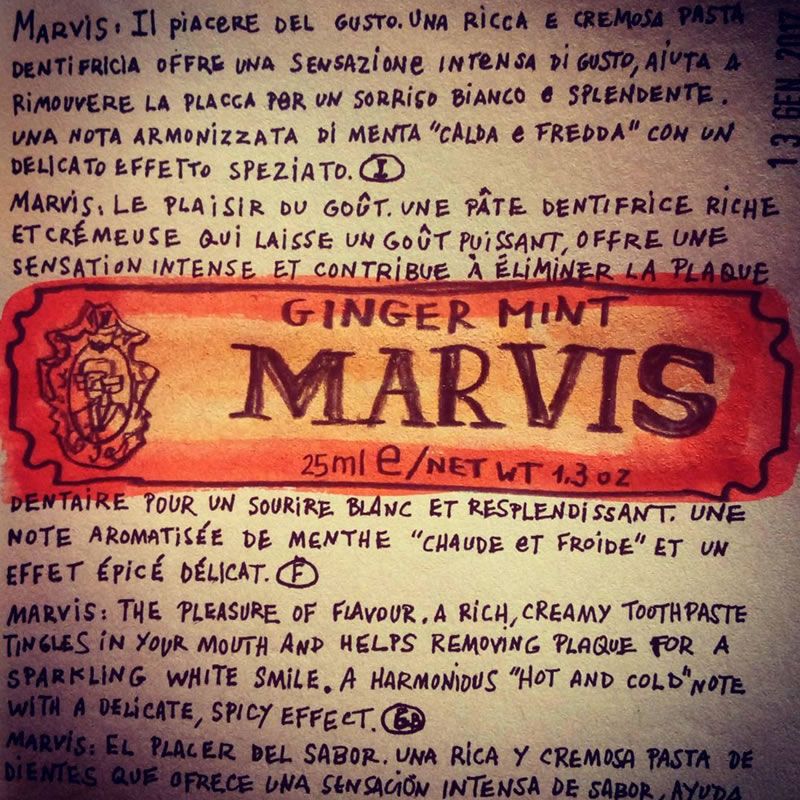 MARVIS: Il PIACERE DEL GUSTO. UNA RICCA E CREMOSA PASTA
DENTIFRICIA OFFRE UNA SENSAZIONE INTENSA DI GUSTO, AIUTA A
RIMOUVERE LA PLACCA PER UN SORRISO BIANCO e SPLENDENTE.
UNA NOTA ARMONIZZATA DI MENTA "CALDA e FREDDA" CON UN
DELICATO EFFETTO SPEZIATO. I
13 GEN 2017
MARVIS: LE PLAISIR DU GOÛT. UNE PÂTE DENTIFRICE RICHE
ET CRÉMEUSE QUI LAISSE UN GOÛT PUISSANT, OFFRE UNE
SENSATION INTENSE ET CONTRIBUE À ÉLIMINER LA PLAQUE
GINGER MINT
MARVIS
25ml e/NET WT 1.3 oz
DENTAIRE POUR UN SOURIRE BLANC ET RESPLENDISSANT. UNE
NOTE AROMATISÉE DE MENTHE "CHAUDE et FROIDE" ET UN
EFFET ÉPICÉ DÉLICAT. F
MARVIS: THE PLEASURE OF FLAVOUR. A RICH, CREAMY TOOTHPASTE
TINGLES IN YOUR MOUTH AND HELPS REMOVING PLAQUE FOR A
SPARKLING WHITE SMILE. A HARMONIOUS "HOT AND COLD" NOTE
WITH A DELICATE, SPICY EFFECT. GB
MARVIS: EL PLACER DEL SABOR. UNA RICA Y CREMOSA PASTA DE
DIENTES QUE OFRECE UNA SENSACIÓN INTENSA DE SABOR, AYUDA